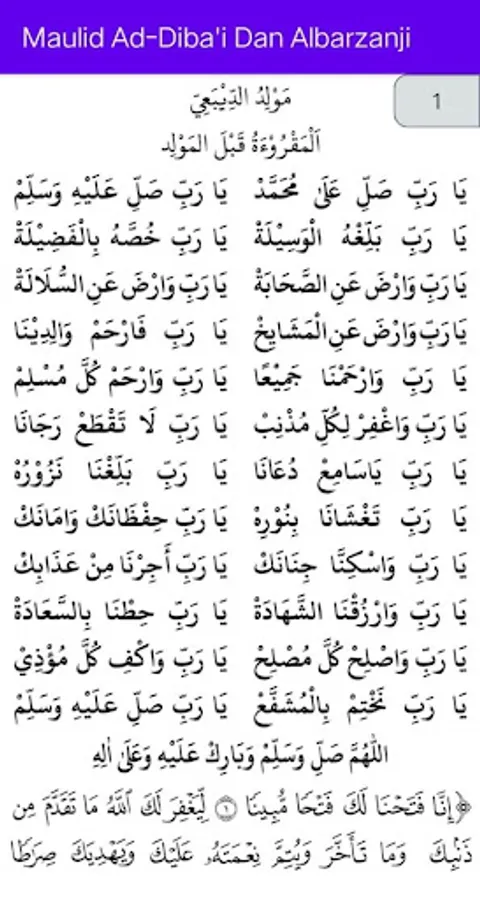 Maulid Ad-Diba'i Dan Albarzanji
1
مَوْلِدُ الدِّيْبَعِيّ
اَلْمَقْرُوْءَةُ قَبْلَ المَوْلِد
يَا رَبِّ صَلِّ عَلَىٰ مُحَمَّدْ يَا رَبِّ صَلِّ عَلَيْهِ وَسَلِّمْ
يَا رَبِّ بَلِّغْهُ الْوَسِيْلَةْ يَا رَبِّ خُصَّهُ بِالْفَضِيْلَةْ
يَا رَبِّ وَارْضَ عَنِ الصَّحَابَةْ يَا رَبِّ وَارْضَ عَنِ السُّلَالَةْ
يَا رَبِّ وَارْضَ عَنِ الْمَشَايِخْ يَا رَبِّ فَارْحَمْ وَالِدِيْنَا
يَا رَبِّ وَارْحَمْنَا جَمِيْعًا يَا رَبِّ وَارْحَمْ كُلَّ مُسْلِمْ
يَا رَبِّ وَاغْفِرْ لِكُلِّ مُذْنِبْ يَا رَبِّ لَا تَقْطَعْ رَجَانَا
يَا رَبِّ يَاسَامِعْ دُعَانَا يَا رَبِّ بَلِّغْنَا نَزُوْرُهْ
يَا رَبِّ تَغْشَانَا بِنُوْرِهْ يَا رَبِّ حِفْظَانَكْ وَامَانَكْ
يَا رَبِّ وَاسْكِنَّا جِنَانَكْ يَا رَبِّ أَجِرْنَا مِنْ عَذَابِكْ
يَا رَبِّ وَارْزُقْنَا الشَّهَادَةْ يَا رَبِّ حِطْنَا بِالسَّعَادَةْ
يَا رَبِّ وَاصْلِحْ كُلَّ مُصْلِحْ يَا رَبِّ وَاكْفِ كُلَّ مُؤْذِيْ
يَا رَبِّ نَخْتِمْ بِالْمُشَفَّعْ يَا رَبِّ صَلِّ عَلَيْهِ وَسَلِّمْ
اَللّٰهُمَّ صَلِّ وَسَلِّمْ وَبَارِكْ عَلَيْهِ وَعَلَىٰ اٰلِهِ
﴿إِنَّا فَتَحْنَا لَكَ فَتْحًا مُّبِينًا ۝١ لِّيَغْفِرَ لَكَ ٱللَّهُ مَا تَقَدَّمَ مِن
ذَنۢبِكَ وَمَا تَأَخَّرَ وَيُتِمَّ نِعْمَتَهُۥ عَلَيْكَ وَيَهْدِيَكَ صِرَٰطًا